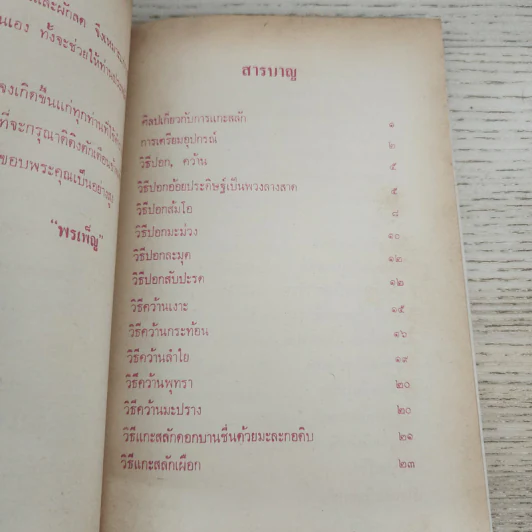 และผักสด
นเอง ทั้งจะช่วยให้
จงเกิดขึ้นแก่ทุกท่านที่
ที่จะกรุณาติติงตักเตือน
ขอบพระคุณเป็นอย่างสูง
"พรเพ็ญ"
สารบาญ
ศิลปเกี่ยวกับการแกะสลัก ๑
การเตรียมอุปกรณ์ ๒
วิธีปอก, คว้าน ๕
วิธีปอกอ้อยประดิษฐ์เป็นพวงลางสาด ๕
วิธีปอกส้มโอ ๘
วิธีปอกมะม่วง ๑๐
วิธีปอกละมุด ๑๒
วิธีปอกสับปะรด ๑๒
วิธีคว้านเงาะ ๑๕
วิธีคว้านกระท้อน ๑๖
วิธีคว้านลำใย ๑๙
วิธีคว้านพุทรา ๒๐
วิธีคว้านมะปราง ๒๐
วิธีแกะสลักดอกบานชื่นด้วยมะละกอดิบ ๒๑
วิธีแกะสลักเผือก ๒๓